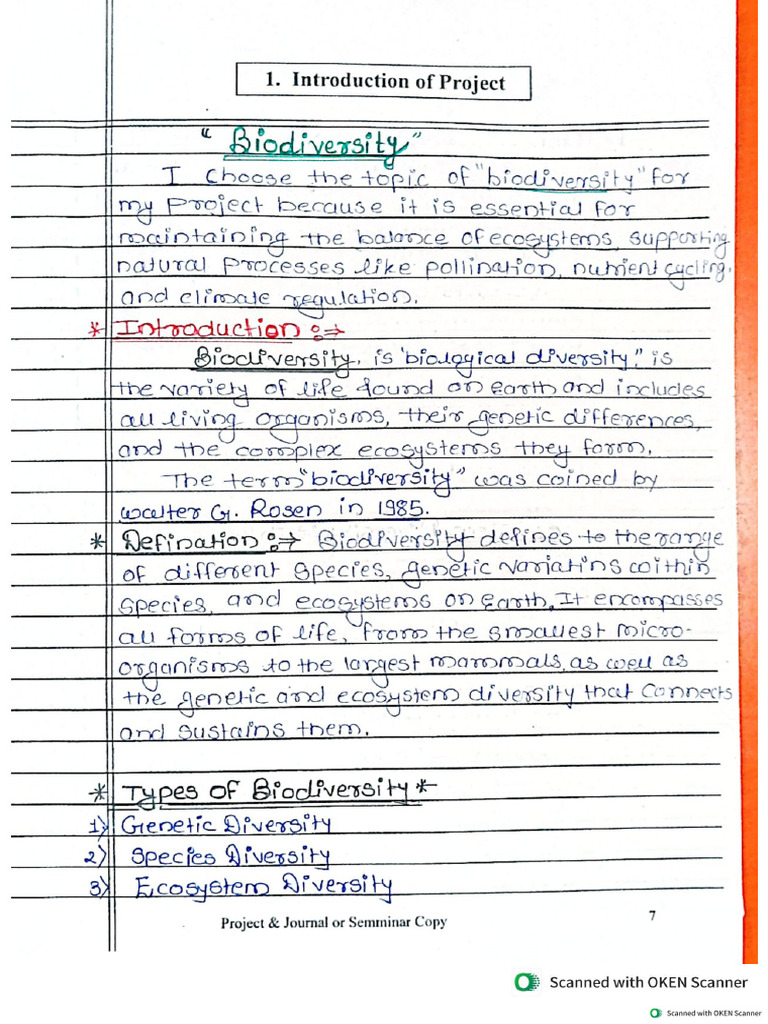 1. Introduction of Project
"Biodiversity"
I choose the topic of "biodiversity" for
my Project because it is essential for
maintaining the balance of ecosystems, supporting
natural processes like pollination, nutrient cycling,
and climate regulation.
* Introduction :→
Biodiversity, is 'biological diversity." is
the variety of life found on Earth and includes
all living organisms, their genetic differences,
and the complex ecosystems they form.
The term "biodiversity" was coined by
walter G. Rosen in 1985.
* Defination :→ Biodiversity defines to the range
of different species, genetic variatins within
species, and ecosystems on Earth. It encompasses
all forms of life, from the smallest micro-
organisms to the largest mammals, as well as
the genetic and ecosystem diversity that connects
and sustains them.
* Types of Biodiversity *
1) Genetic Diversity
2) Species Diversity
3) Ecosystem Diversity
Project & Journal or Semminar Copy
7
Scanned with OKEN Scanner
Scanned with OKEN Scanner